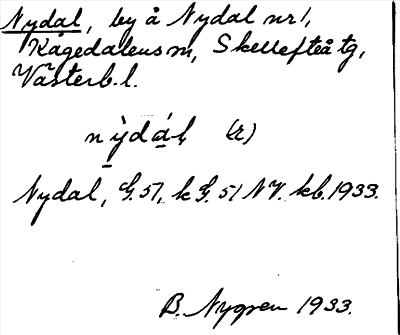 Nydal, by å Nydal nr 1,
Kågedalens sn, Skellefteå tg,
Västerb. l.
nỳ̱dá̱l, (r)
Nydal, G. 51, k G. 51 NV. kb. 1933.
B. Nygren 1933.